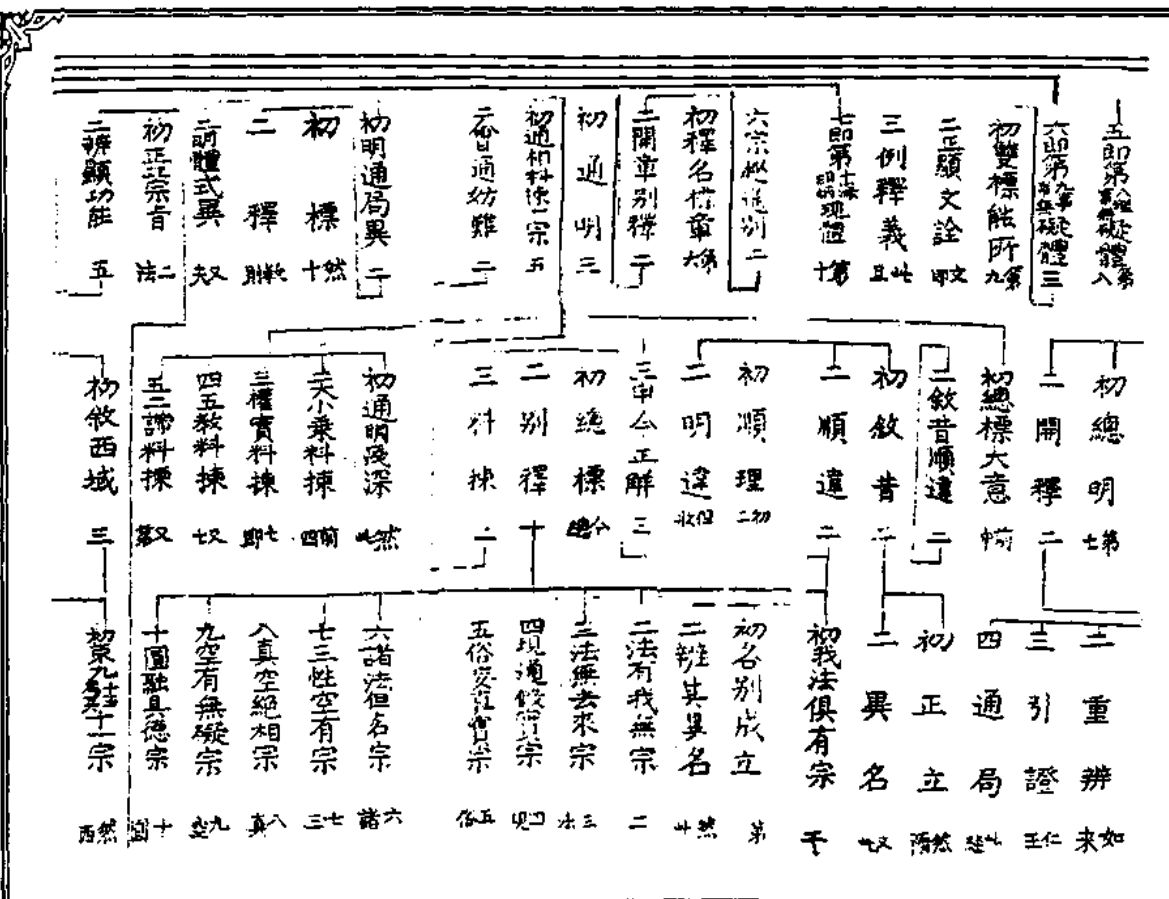 五即第八理事無礙體 第八
六即第九事事無礙體 三
初雙標能所 第九
二正顯文詮 文即
三例釋義 此且
七即第十海印炳現體 第十
六宗趣通別 二
初釋名標章 第六
二開章別釋 二
初通明 三
初通相料揀一宗 五
二會通妨難 二
初明通局異 二
初標 然十
二釋
二明體式異 又夫
初正立宗旨 二法
二辨顯功能 五
初總明 第七
二開釋 二
初總標大意
二敘昔順違 二
初敘昔 二
二順違 二
初順理 初二
二明違 但
三申今正解 三
初總標 今總
二別釋 十
三料揀 二
初通明淺深 然此
二大小乘料揀 前四
三權實料揀 七即
四五教料揀 又七
五二諦料揀 又
初敘西域 三
二重辨 如來
三引證 仁王
四通局 此
初正立 然
二異名 又
初我法俱有宗
初名別成立 第
二辨其異名 然
二法有我無宗 二
三法無去來宗 三法
四現通假實宗 四現
五俗妄真實宗 五俗
六諸法但名宗 六諸
七三性空有宗 七三
八真空絕相宗 八真
九空有無礙宗 九空
十圓融具德宗 十圓